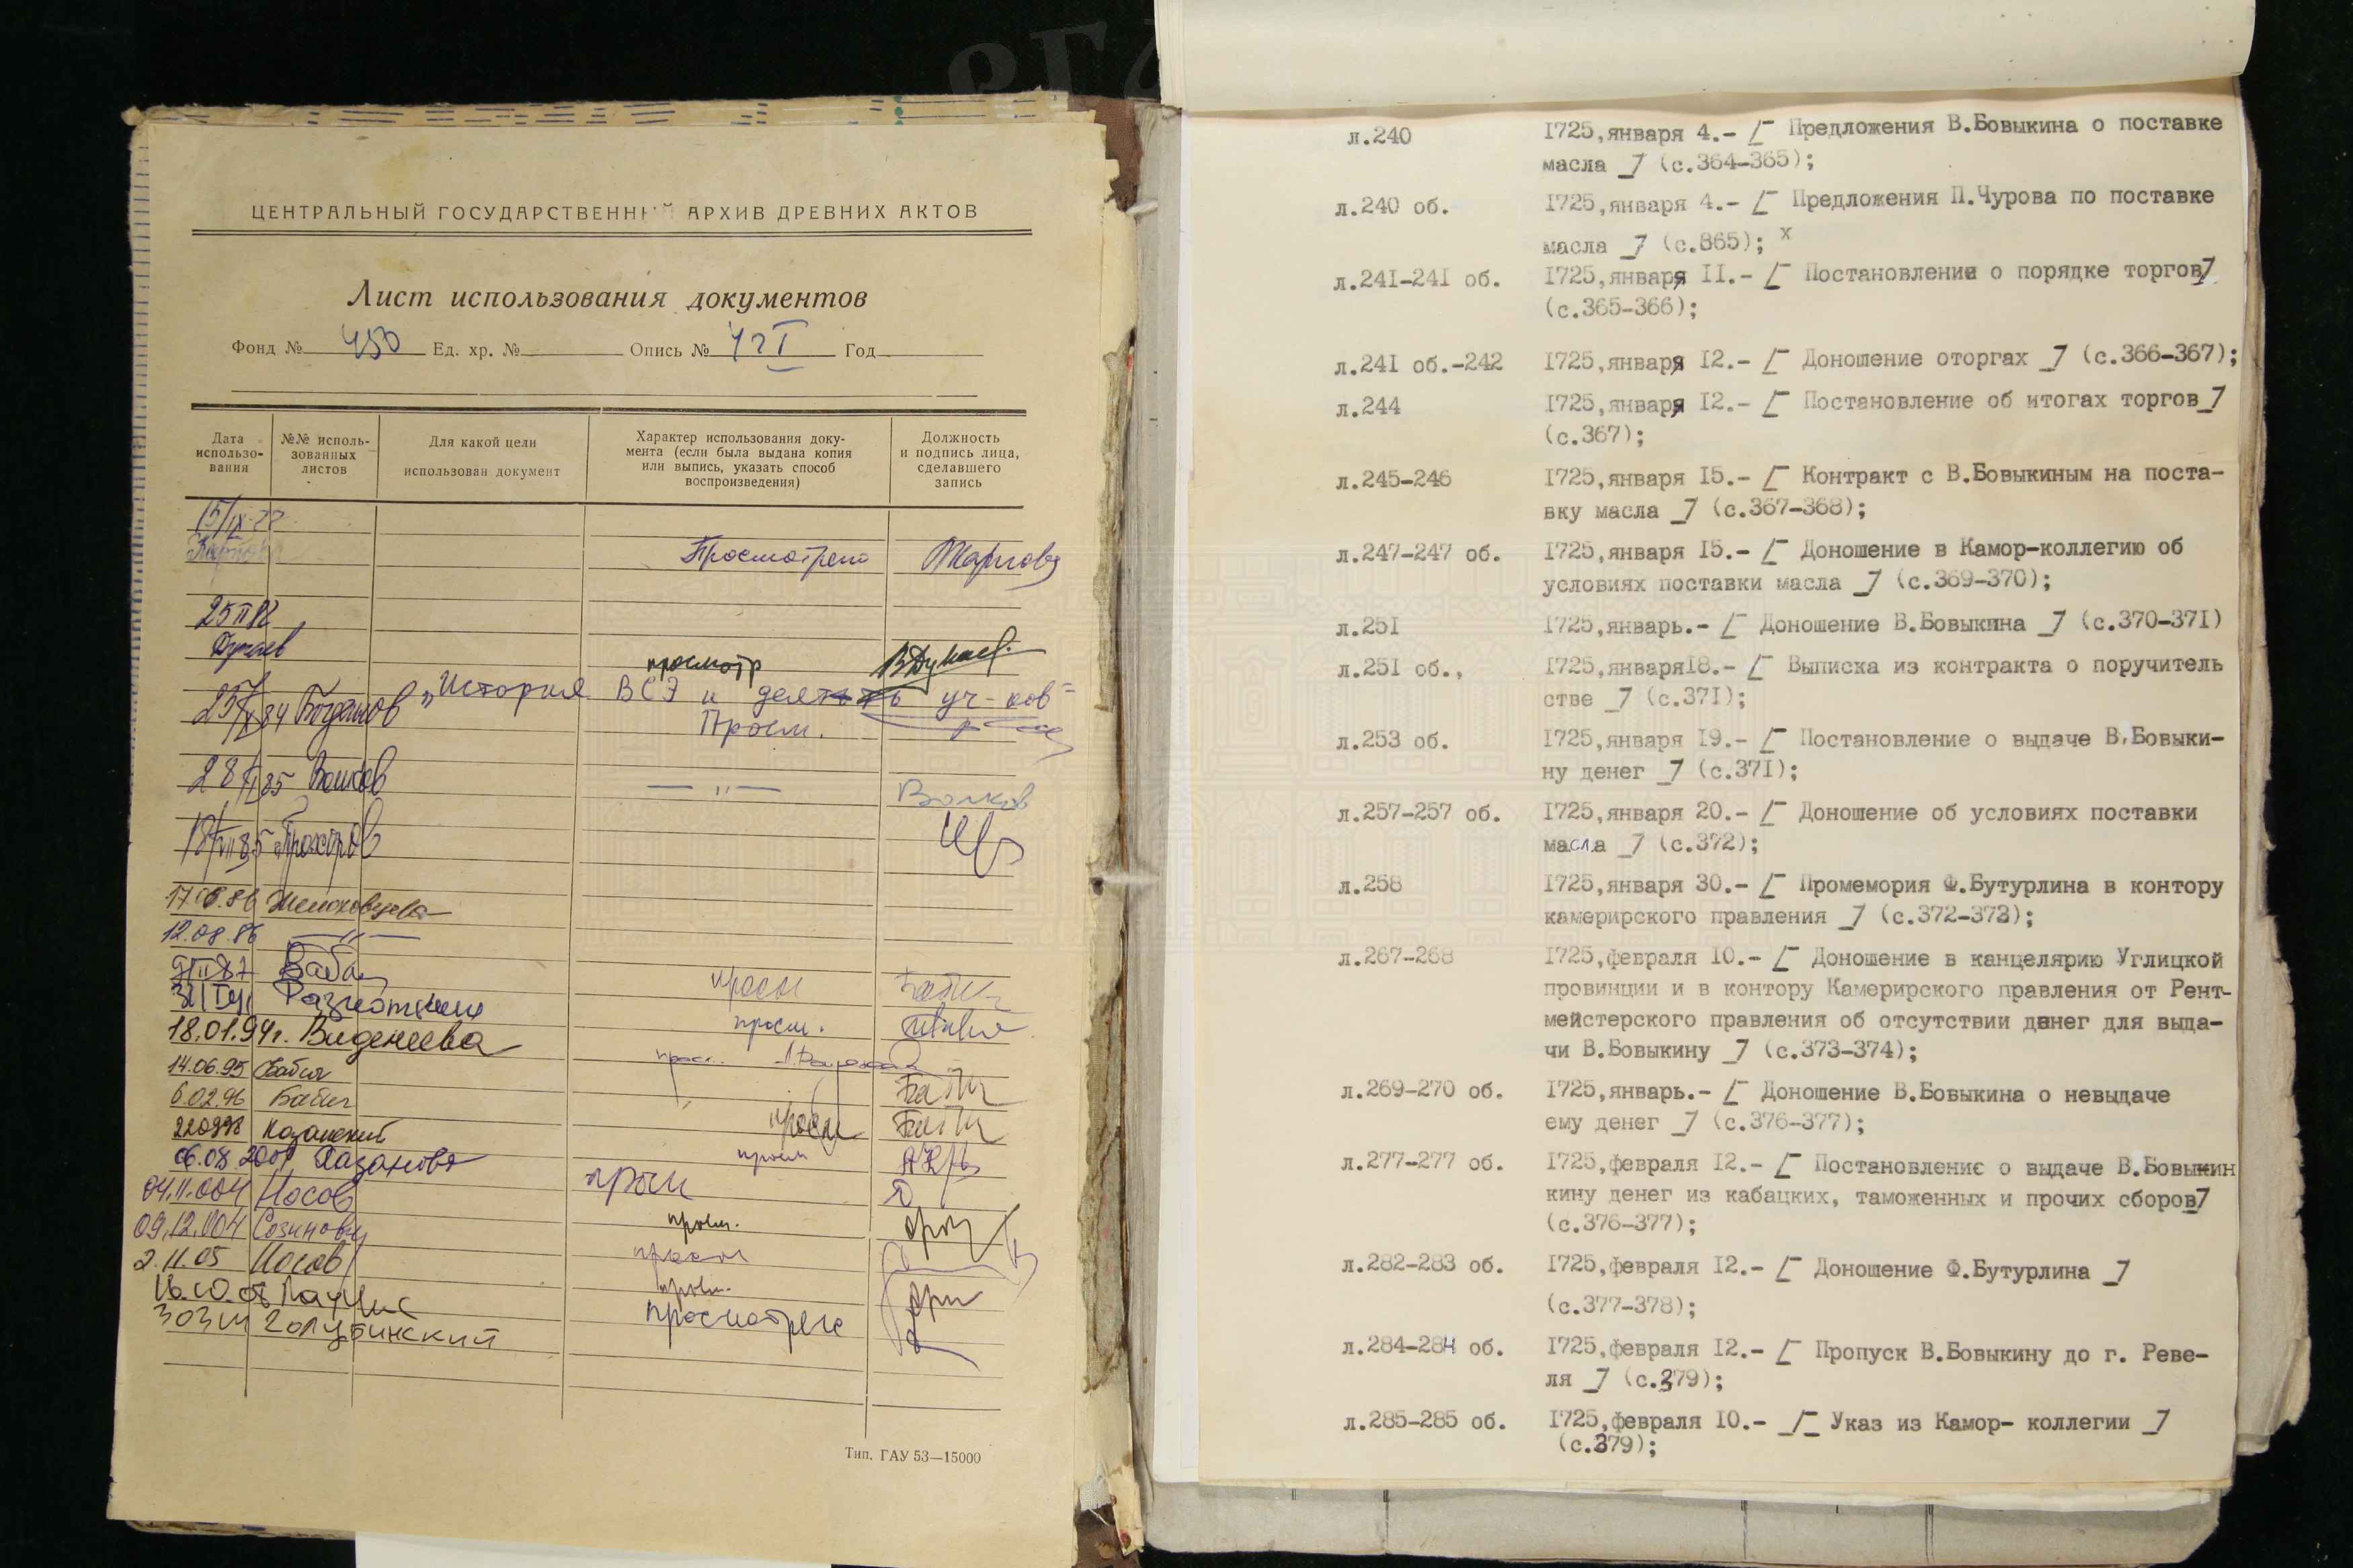 ЦЕНТРАЛЬНЫЙ ГОСУДАРСТВЕННЫЙ АРХИВ ДРЕВНИХ АКТОВ
Лист использования документов
Фонд № 450 Ед. хр. № Опись № Год
Дата использо-вания
№№ исполь-зованных листов
Для какой цели использован документ
Характер использования доку-мента (если была выдана копия или выпись, указать способ воспроизведения)
Должность и подпись лица, сделавшего запись
15/IX-77
Просмотрено
25 II 82
Дунаев просмотр
„История ВСЭ и уч-ков"
Богданов Просм.
85 Волков — „ — Волков
85 Прохоров
86
12.08.86 — „ —
87 просм
просм.
18.01.94г. Виденеева
14.06.95 Бабич
6.02.96 Бабич просм
Казанский просм
06.08 2001 Казакова просм
04.11.004 Носов просм.
09.12.004 просм
2.11.05 Носов просм.
просмотрено
Голубинский
Тип. ГАУ 53—15000
л.240 1725,января 4.- [ Предложения В.Бовыкина о поставке
масла ] (с.364-365);
л.240 об. 1725,января 4.- [ Предложения П.Чурова по поставке
масла ] (с.865); x
л.241-241 об. 1725,января 11.- [ Постановление о порядке торгов]
(с.365-366);
л.241 об.-242 1725,января 12.- [ Доношение оторгах ] (с.366-367);
л.244 1725,января 12.- [ Постановление об итогах торгов ]
(с.367);
л.245-246 1725,января 15.- [ Контракт с В.Бовыкиным на поста-
вку масла ] (с.367-368);
л.247-247 об. 1725,января 15.- [ Доношение в Камор-коллегию об
условиях поставки масла ] (с.369-370);
л.251 1725,январь.- [ Доношение В.Бовыкина ] (с.370-371)
л.251 об., 1725,января18.- [ Выписка из контракта о поручитель
стве ] (с.371);
л.253 об. 1725,января 19.- [ Постановление о выдаче В.Бовыки-
ну денег ] (с.371);
л.257-257 об. 1725,января 20.- [ Доношение об условиях поставки
масла ] (с.372);
л.258 1725,января 30.- [ Промемория Ф.Бутурлина в контору
камерирского правления ] (с.372-373);
л.267-268 1725,февраля 10.- [ Доношение в канцелярию Углицкой
провинции и в контору Камерирского правления от Рент-
мейстерского правления об отсутствии денег для выда-
чи В.Бовыкину ] (с.373-374);
л.269-270 об. 1725,январь.- [ Доношение В.Бовыкина о невыдаче
ему денег ] (с.376-377);
л.277-277 об. 1725,февраля 12.- [ Постановление о выдаче В.Бовыкин
кину денег из кабацких, таможенных и прочих сборов]
(с.376-377);
л.282-283 об. 1725,февраля 12.- [ Доношение Ф.Бутурлина ]
(с.377-378);
л.284-284 об. 1725,февраля 12.- [ Пропуск В.Бовыкину до г. Реве-
ля ] (с.379);
л.285-285 об. 1725,февраля 10.- [ Указ из Камор- коллегии ]
(с.379);